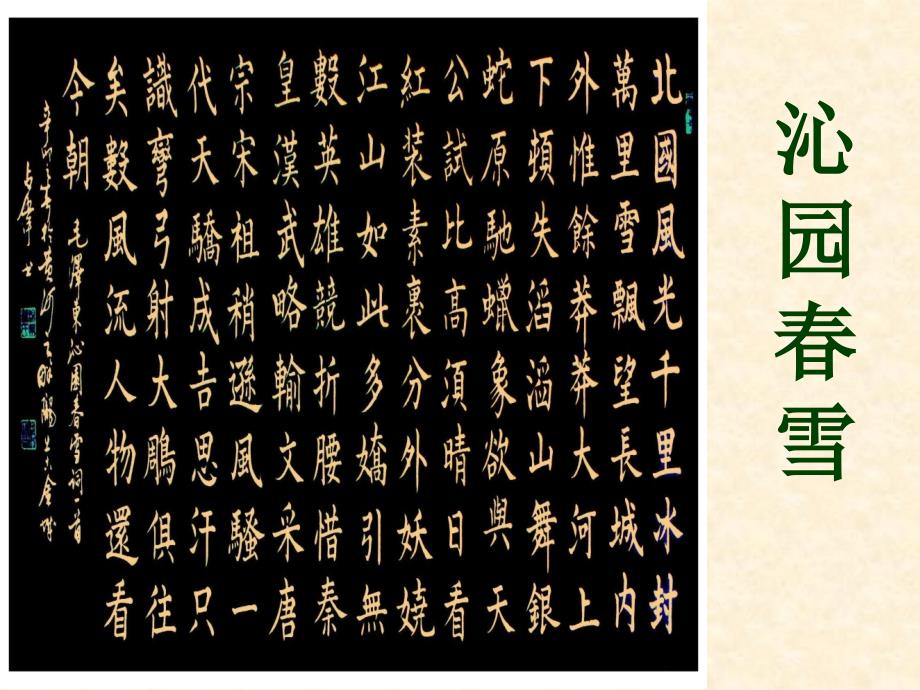 沁园春雪
北國風光千里冰封
萬里雪飄望長城内
外惟餘莽莽大河上
下頓失滔滔山舞銀
蛇原馳蠟象欲與天
公試比高須晴日看
紅装素裹分外妖嬈
江山如此多嬌引無
數英雄競折腰惜秦
皇漢武略輸文采唐
宗宋祖稍遜風騷一
代天驕成吉思汗只
識彎弓射大鵰俱往
矣數風流人物還看
今朝
毛澤東沁園春雪詞一首
辛卯